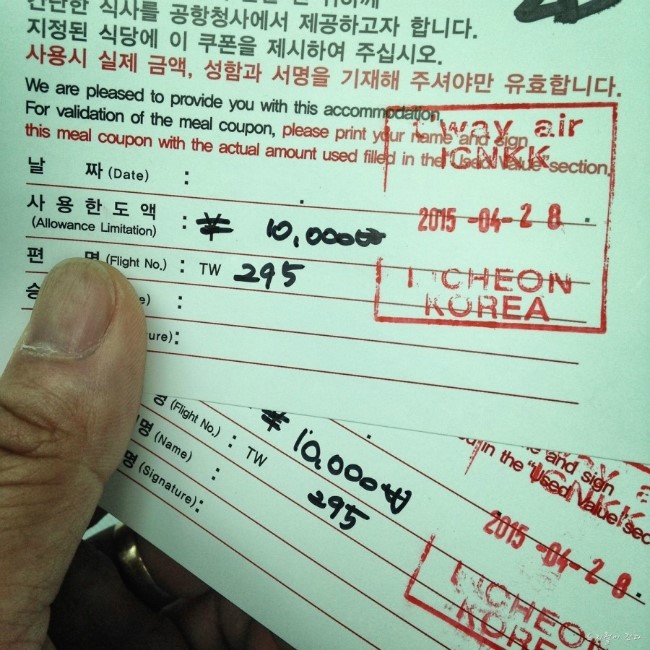 간단한 식사를 공항청사에서 제공하고자 합니다.
지정된 식당에 이 쿠폰을 제시하여 주십시오.
사용시 실제 금액, 성함과 서명을 기재해 주셔야만 유효합니다.
We are pleased to provide you with this accommodation.
For validation of the meal coupon, please print your name and sign
this meal coupon with the actual amount used filled in the "Used Value" section.
t'way air
ICNKK
날 짜 (Date) :
2015 -04- 2 8
사 용 한 도 액
(Allowance Limitation) : ₩ 10,000₩
편 명 (Flight No.) : TW 295
INCHEON
KOREA
명 (Flight No.) : TW 295
₩ 10,000₩
명 (Name) :
명 (Signature) :
and sign
in the "Used Value" sec
way air
ICNKK
2015 -04- 2 8
INCHEON
KOREA